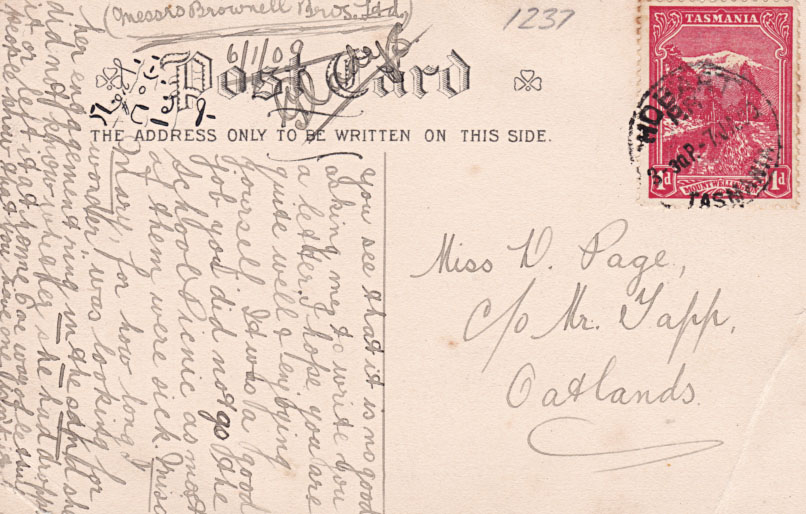 (Messrs Brownell Bros. Ltd)
1237
6/1/09
Post Card
THE ADDRESS ONLY TO BE WRITTEN ON THIS SIDE.
TASMANIA
MOUNT WELLINGTON
1d 1d
HOBART
TASMANIA
Miss W. Page,
c/o Mr. Tapp,
Oatlands.
you see that it is no good
asking me to write you
a letter. I hope you are
quite well & enjoying
yourself. It was a good
job you did not go the
School Picnic as most
of them were sick. Miss
Mary, for how long I
wonder, was looking for
her engagement ring in the sand she
did not know whether she had dropped
it or left it at home
people know that you have one